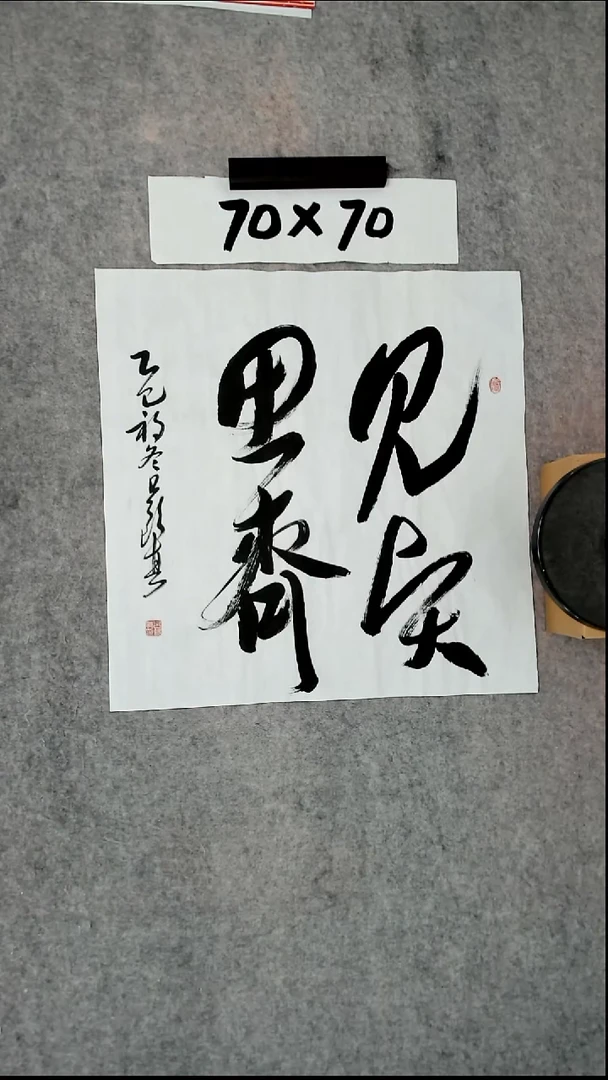 70×70
见贤
思齐
乙巳初冬